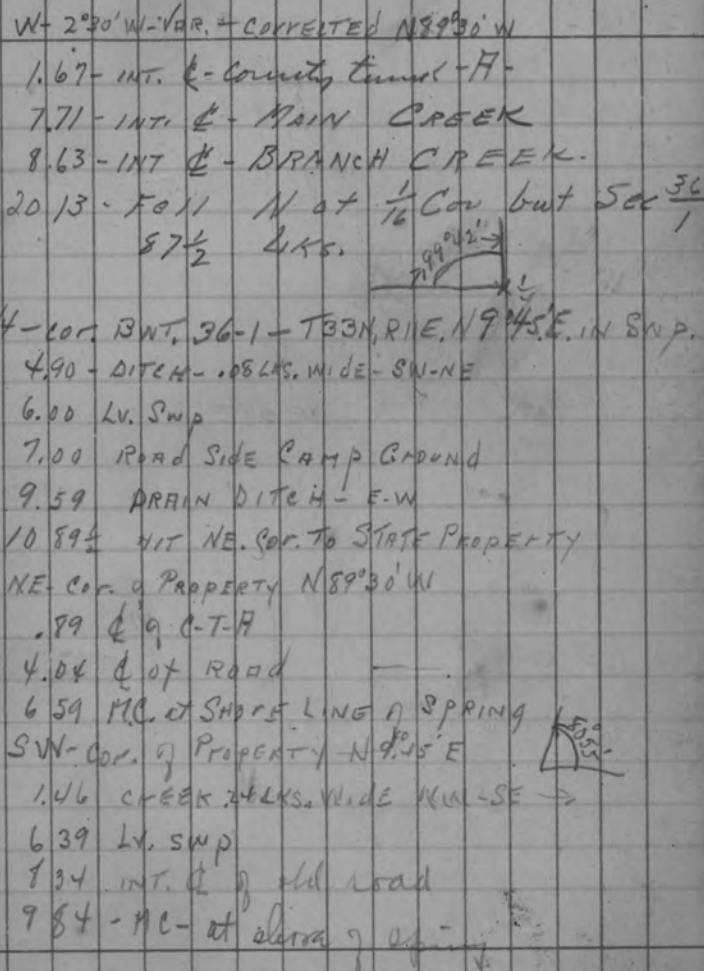 W- 2°30' W-VAR. - CORRECTED N89°30'W
1.67- INT. ℄ - County trunk -A-
7.71 - INT. ℄ - MAIN CREEK
8.63 - INT ℄ - BRANCH CREEK.
20 13 - Fell N of 1/16 Cor bwt Sec 36/1
87½ LKS.
99°42'
¼
4-cor. BWT. 36-1 - T33N, R1E, N9°45'E. IN SWP.
4.90 - DITCH - .08 LKS. WIDE - SW-NE
6.00 LV. SWP
7.00 ROAD SIDE CAMP GROUND
9.59 DRAIN DITCH - E-W
10 89½ HIT NE. Cor. TO STATE PROPERTY
NE- Cor. of PROPERTY N89°30'W
.89 ℄ of C-T-A
4.04 ℄ of ROAD
6 59 M.C. at SHORE LINE of SPRING
SW- Cor. of PROPERTY - N9°45'E
80°55'
1.46 CREEK .24 LKS. WIDE NW-SE →
6 39 LV. SWP
8 34 INT. ℄ of old road
9 84 - MC- at shore of spring